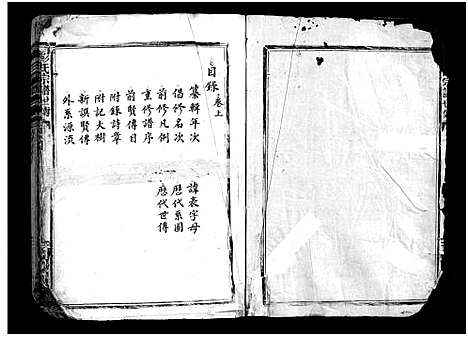 目錄 卷上
纂輯年次
倡修名次
前修凡例
重修譜序
前賢傳目
附錄詩章
附記大樹
新譔賢傳
外系源流
諱表字母
歷代系圖
歷代世傳
彭氏宗譜世傳